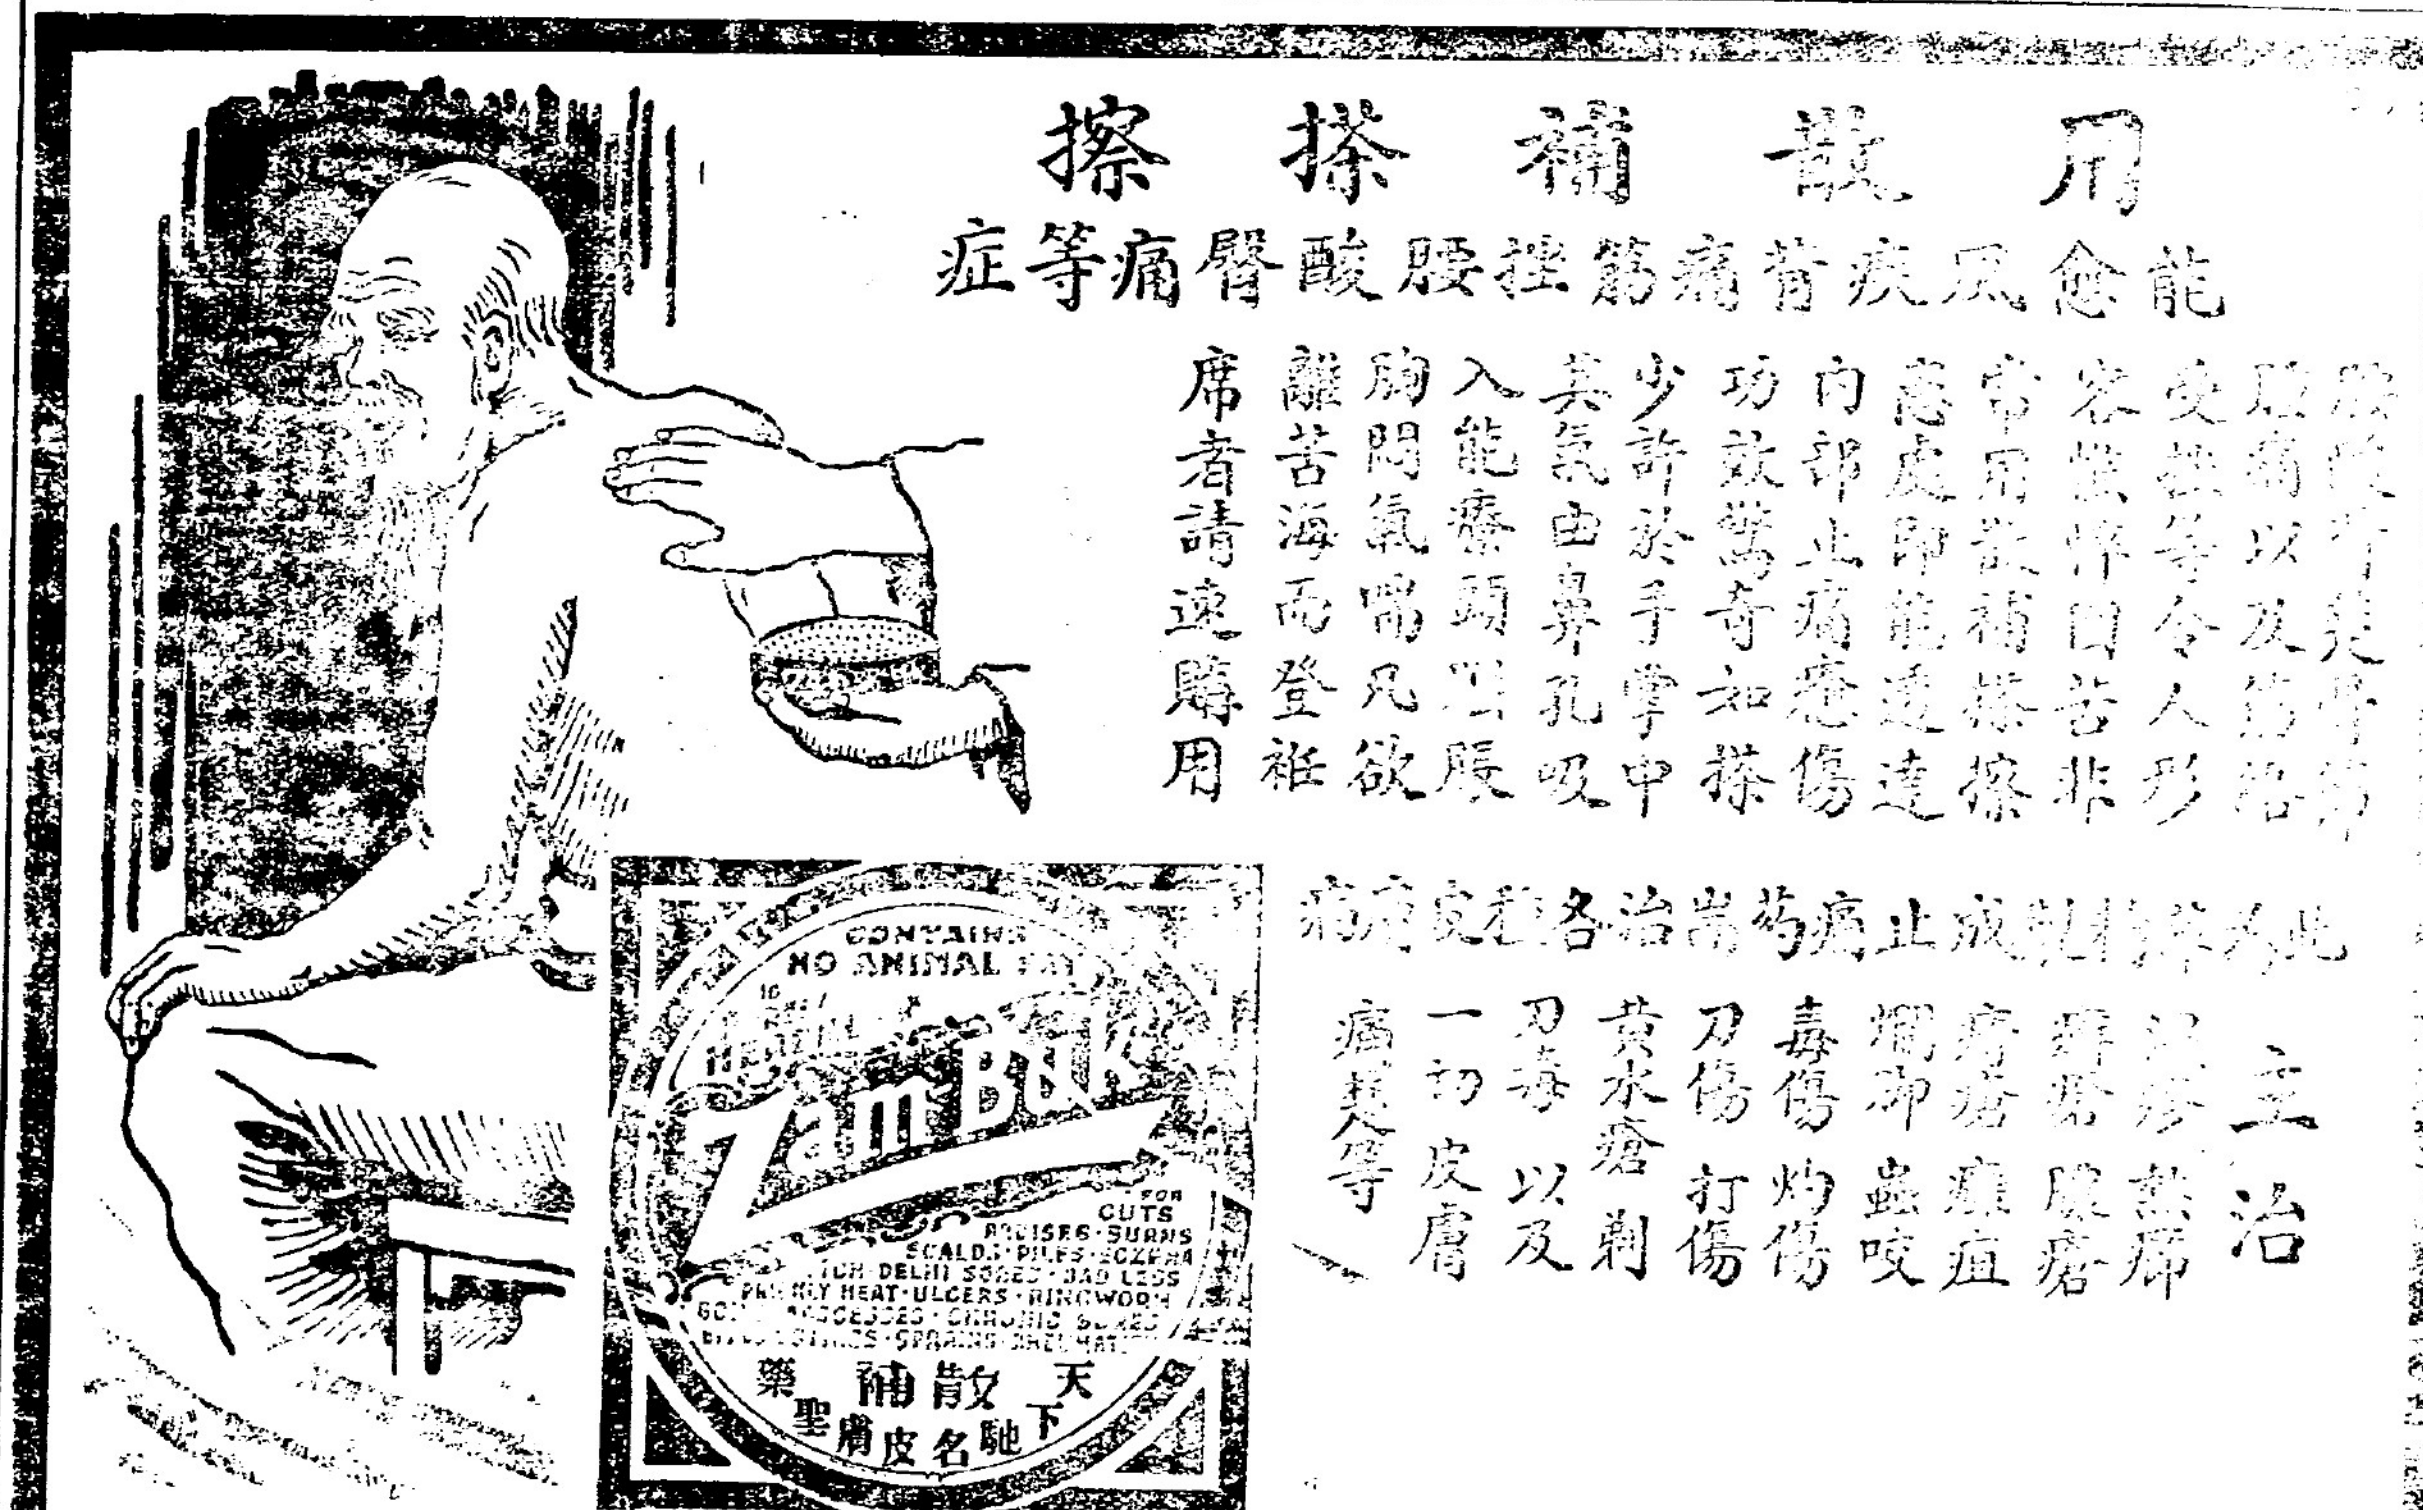 用散補搽擦
能愈風疾背痛筋挫腰酸臀痛等症
腿痛以及筋
受挫等令人形
容憔悴困苦非
常用散補搽擦
患處即能透達
内部止痛瘡傷
功效驚奇如搽
少許於手掌中
其氣由鼻孔吸
入能療頭脹
胸悶氣喘凡欲
離苦海而登袵
席者請速購用
此為 成止痛药耑治各種皮膚病
主治
濕疹 熱癤
癬瘡 膿瘡
疔瘡 癰疽
爛脚 蟲咬
毒傷 灼傷
刀傷 打傷
黃水瘡 剃
刀毒 以及
一切皮膚
痛楚等
CONTAINS
NO ANIMAL FAT
Zam-Buk
FOR
CUTS
BRUISES·BURNS
SCALDS·PILES·ECZEMA
ITCH·DELHI SORES·BAD LEGS
PRICKLY HEAT·ULCERS·RINGWORM
ABSCESSES·CHRONIC SORES
SPRAINS·RHEUMATISM
散補
天下馳名皮膚聖藥